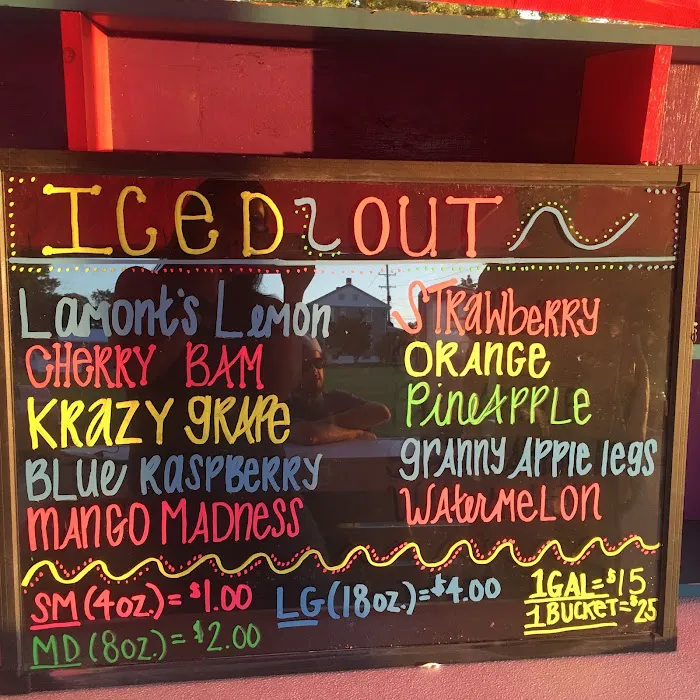 ICED OUT
Lamont's Lemon
CHERRY BAM
KRAZY GRAPE
BLUE RASPBERRY
MANGO MADNESS
STRAWBERRY
ORANGE
PINEAPPLE
GRANNY APPLE legs
WATERMELON
SM (4oz.) = $1.00
MD (8oz.) = $2.00
LG (18oz.) = $4.00
1GAL = $15
1 BUCKET = $25